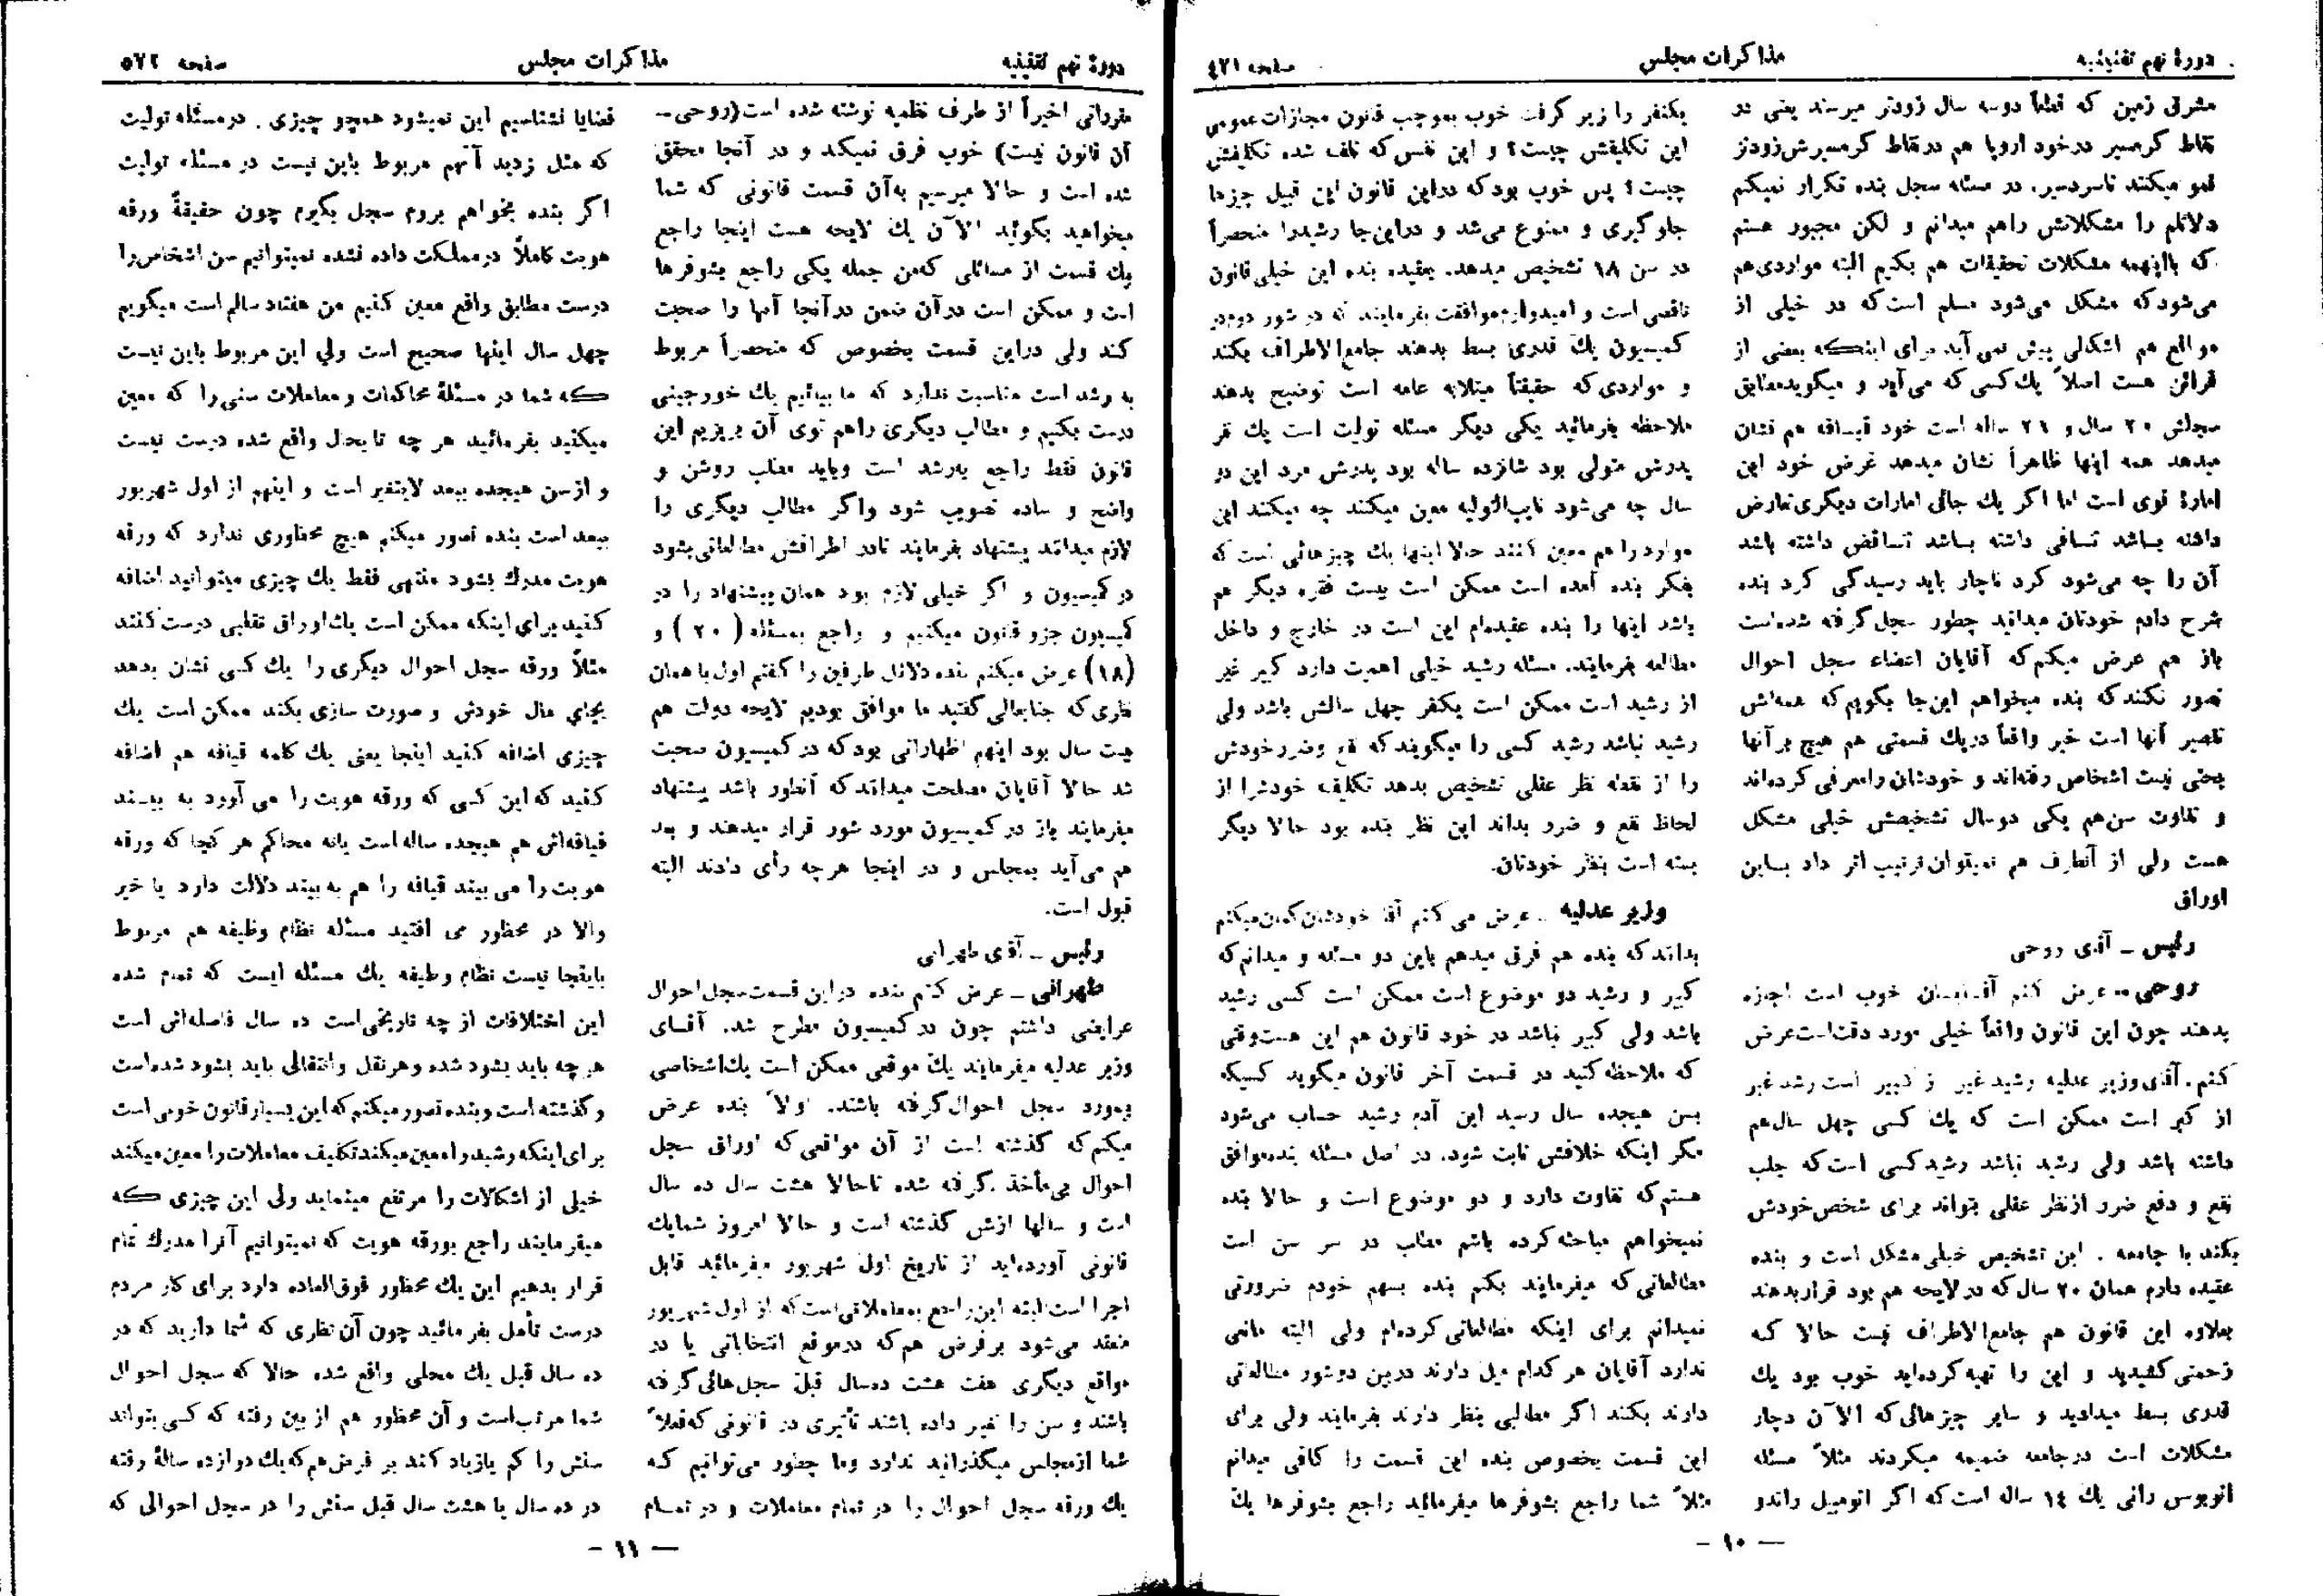 دورۀ نهم تقنینیه
مذاکرات مجلس
صفحه ٤٧١
مشرق زمین که قطعاً دوسه سال زودتر میرسند یعنی در
نقاط گرمسیر درخود اروپا هم در نقاط گرمسیرش زودتر
نمو میکنند تا سردسیر. در مسئله سجل بنده تکرار نمیکنم
دلائلم را مشکلاتش را هم میدانم و لکن مجبور هستم
که با اینهمه مشکلات تحقیقات هم بکنیم البته مواردی هم
می‌شود که مشکل می‌شود مسلم است که در خیلی از
مواقع هم اشکالی پیش نمی آید برای اینکه بعضی از
قرائن هست اصلاً یك کسی که می‌آید و میگوید مطابق
سجلش ۲۰ سال و ۲۱ ساله است خود قیافه هم نشان
میدهد همه اینها ظاهراً نشان میدهد غرض خود این
امارۀ قوی است اما اگر یك جائی امارات دیگری تعارض
داشته باشد تنافی داشته باشد تناقض داشته باشد
آن را چه می‌شود کرد ناچار باید رسیدگی کرد بنده
شرح دادم خودتان میدانید چطور سجل گرفته شده است
باز هم عرض میکنم که آقایان اعضاء سجل احوال
تصور نکنند که بنده میخواهم این‌جا بگویم که همه‌اش
تقصیر آنها است خیر واقعاً در یك قسمتی هم هیچ بر آنها
بحثی نیست اشخاص رفته‌اند و خودشان را معرفی کرده‌اند
و تفاوت سن هم یکی دو سال تشخیصش خیلی مشکل
هست ولی از آنطرف هم نمیتوان ترتیب اثر داد باین
اوراق
رئیس ـ آقای روحی
روحی ـ عرض کنم آقایان خوب است اجازه
بدهند چون این قانون واقعاً خیلی مورد دقت است عرض
کنم. آقای وزیر عدلیه رشید غیر از کبیر است رشد غیر
از کبر است ممکن است که یك کسی چهل سال هم
داشته باشد ولی رشید نباشد رشید کسی است که جلب
نفع و دفع ضرر از نظر عقلی بتواند برای شخص خودش
بکند با جامعه. این تشخیص خیلی مشکل است و بنده
عقیده دارم همان ۲۰ سال که در لایحه هم بود قرار بدهند
بعلاوه این قانون هم جامع الاطراف نیست حالا که
زحمتی کشیدید و این را تهیه کرده‌اید خوب بود یك
قدری بسط میدادید و سایر چیزهائی که الآن دچار
مشکلات است در جامعه ضمیمه میکردند مثلاً مسئله
اتوبوس رانی یك ١٤ ساله است که اگر اتومبیل راند و
یکنفر را زیر گرفت خوب بموجب قانون مجازات عمومی
این تکلیفش چیست؟ و این نفس که تلف شده تکلیفش
چیست؟ پس خوب بود که در این قانون این قبیل چیزها
جلوگیری و ممنوع می‌شد و در این‌جا رشید را منحصراً
در سن ۱۸ تشخیص میدهد. بعقیده بنده این خیلی قانون
ناقصی است و امیدوارم موافقت بفرمایند که در شور دوم در
کمیسیون یك قدری بسط بدهند جامع الاطراف بکند
و مواردی که حقیقتاً مبتلابه عامه است توضیح بدهند
ملاحظه بفرمائید یکی دیگر مسئله تولیت است یك نفر
پدرش متولی بود شانزده ساله بود پدرش مرد این دو
سال چه می‌شود نایب التولیه معین میکنند چه میکنند این
موارد را هم معین کنند حالا اینها یك چیزهائی است که
بفکر بنده آمده است ممکن است بیست فقره دیگر هم
باشد اینها را بنده عقیده‌ام این است در خارج و داخل
مطالعه بفرمایند. مسئله رشید خیلی اهمیت دارد کبیر غیر
از رشید است ممکن است یکنفر چهل سالش باشد ولی
رشید نباشد رشید کسی را میگویند که نفع و ضرر خودش
را از نقطه نظر عقلی تشخیص بدهد تکلیف خودش را از
لحاظ نفع و ضرر بداند این نظر بنده بود حالا دیگر
بسته است بنظر خودتان.
وزیر عدلیه ـ عرض می کنم آقا خودشان گمان میکنم
بدانند که بنده هم فرق میدهم باین دو مسئله و میدانم که
کبیر و رشید دو موضوع است ممکن است کسی رشید
باشد ولی کبیر نباشد در خود قانون هم این هست وقتی
که ملاحظه کنید در قسمت آخر قانون میگوید کسیکه
بسن هیجده سال رسید این آدم رشید حساب می‌شود
مگر اینکه خلافش ثابت شود. در اصل مسئله بنده موافق
هستم که تفاوت دارد و دو موضوع است و حالا بنده
نمیخواهم مباحثه کرده باشم مطلب در سر سن است
مطالعاتی که میفرمایند بکنم بنده بسهم خودم ضرورتی
نمیدانم برای اینکه مطالعاتی کرده‌ام ولی البته مانعی
ندارد آقایان هر کدام میل دارند در بین دو شور مطالعاتی
دارند بکنند اگر مطالبی بنظر دارند بفرمایند ولی برای
این قسمت بخصوص بنده این قسمت را کافی میدانم
مثلاً شما راجع بشوفرها میفرمائید راجع بشوفرها یك
— ۱۰ —
دورۀ نهم تقنینیه
مذاکرات مجلس
صفحه ٥٧٢
مقرراتی اخیراً از طرف نظمیه نوشته شده است (روحی ـ
آن قانون نیست) خوب فرق نمیکند و در آنجا محقق
شده است و حالا میرسیم به آن قسمت قانونی که شما
میخواهید بگوئید الآن یك لایحه هست اینجا راجع
بیك قسمت از مسائلی که من جمله یکی راجع بشوفرها
است و ممکن است در آن ضمن در آنجا آنها را صحبت
کند ولی در این قسمت بخصوص که منحصراً مربوط
به رشد است مناسبت ندارد که ما بیائیم یك خورجینی
درست بکنیم و مطالب دیگری را هم توی آن بریزیم این
قانون فقط راجع برشد است و باید مطلب روشن و
واضح و ساده تصویب شود و اگر مطالب دیگری را
لازم میدانند پیشنهاد بفرمایند تا در اطرافش مطالعاتی بشود
در کمیسیون و اگر خیلی لازم بود همان پیشنهاد را در
کمیسیون جزو قانون میکنیم و راجع بمسئله (۲۰) و
(۱۸) عرض میکنم بنده دلائل طرفین را گفتم اول با همان
نظری که جنابعالی گفتید ما موافق بودیم لایحه دولت هم
بیست سال بود اینهم اظهاراتی بود که در کمیسیون صحبت
شد حالا آقایان مصلحت میدانند که آنطور باشد پیشنهاد
بفرمایند باز در کمیسیون مورد شور قرار میدهند و بعد
هم می‌آید بمجلس و در اینجا هرچه رأی دادند البته
قبول است.
رئیس ـ آقای طهرانی
طهرانی ـ عرض کنم بنده در این قسمت سجل احوال
عرایضی داشتم چون در کمیسیون مطرح شد. آقای
وزیر عدلیه میفرمایند یك موقعی ممکن است یك اشخاصی
بمورد سجل احوال گرفته باشند. اولاً بنده عرض
میکنم که گذشته است از آن مواقعی که اوراق سجل
احوال بی‌مأخذ گرفته شده تا حالا هشت سال ده سال
است و سالها ازش گذشته است و حالا امروز شما یك
قانونی آورده‌اید از تاریخ اول شهریور میفرمائید قابل
اجرا است البته این راجع بمعاملاتی است که از اول شهریور
منعقد می‌شود بر فرض هم که در موقع انتخاباتی یا در
مواقع دیگری هفت هشت ده سال قبل سجل هائی گرفته
باشند و سن را تغییر داده باشند تأثیری در قانونی که فعلاً
شما از مجلس میگذرانید ندارد وما چطور می‌توانیم که
یك ورقه سجل احوال را در تمام معاملات و در تمام
قضایا نشناسیم این نمیشود همچو چیزی. در مسئله تولیت
که مثل زدید آنهم مربوط باین نیست در مسئله تولیت
اگر بنده بخواهم بروم سجل بگیرم چون حقیقةً ورقه
هویت کاملاً در مملکت داده نشده نمیتوانیم سن اشخاص را
درست مطابق واقع معین کنیم من هفتاد سالم است میگویم
چهل سال اینها صحیح است ولی این مربوط باین نیست
که شما در مسئلۀ محاکمات و معاملات سنی را که معین
میکنید بفرمائید هر چه تا بحال واقع شده درست نیست
و از سن هیجده ببعد لایتغیر است و اینهم از اول شهریور
ببعد است بنده تصور میکنم هیچ محظوری ندارد که ورقه
هویت مدرك بشود منتهی فقط یك چیزی میتوانید اضافه
کنید برای اینکه ممکن است یك اوراق تقلبی درست کنند
مثلاً ورقه سجل احوال دیگری را یك کسی نشان بدهد
بجای مال خودش و صورت سازی بکند ممکن است یك
چیزی اضافه کنید اینجا یعنی یك کلمه قیافه هم اضافه
کنید که این کسی که ورقه هویت را می آورد به بینند
قیافه‌اش هم هیجده ساله است یا نه محاکم هر کجا که ورقه
هویت را می بیند قیافه را هم به بیند دلالت دارد یا خیر
والا در محظور می افتید مسئله نظام وظیفه هم مربوط
باینجا نیست نظام وظیفه یك مسئله ایست که تمام شده
این اختلافات از چه تاریخی است ده سال فاصله‌اش است
هر چه باید بشود شده و هر نقل و انتقالی باید بشود شده است
و گذشته است و بنده تصور میکنم که این بسیار قانون خوبی است
برای اینکه رشید را معین میکند تکلیف معاملات را معین میکند
خیلی از اشکالات را مرتفع مینماید ولی این چیزی که
میفرمایند راجع بورقه هویت که نمیتوانیم آنرا مدرك تام
قرار بدهیم این یك محظور فوق العاده دارد برای کار مردم
درست تأمل بفرمائید چون آن نظری که شما دارید که در
ده سال قبل یك محلی واقع شده حالا که سجل احوال
شما مرتب است و آن محظور هم از بین رفته که کسی بتواند
سنش را کم یا زیاد کند بر فرض هم که یك دوازده سالۀ رفته
در ده سال یا هشت سال قبل سنش را در سجل احوالی که
— ۱۱ —